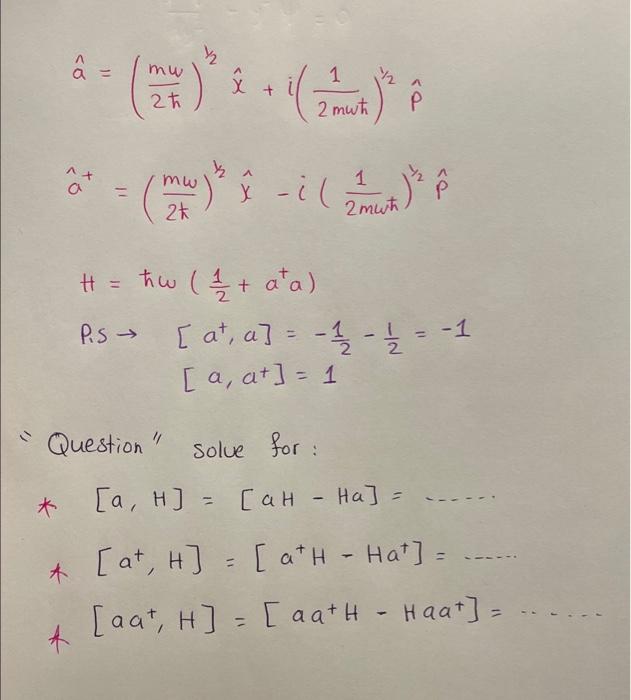 â = (mω/2ħ)^½ x̂ + i(1/2mωħ)^½ p̂
â⁺ = (mω/2ħ)^½ x̂ - i(1/2mωħ)^½ p̂
H = ħω (1/2 + a⁺a)
P.S → [a⁺, a] = -1/2 - 1/2 = -1
[a, a⁺] = 1
"Question" solve for :
* [a, H] = [aH - Ha] = ......
* [a⁺, H] = [a⁺H - Ha⁺] = ......
* [aa⁺, H] = [aa⁺H - Haa⁺] = .......